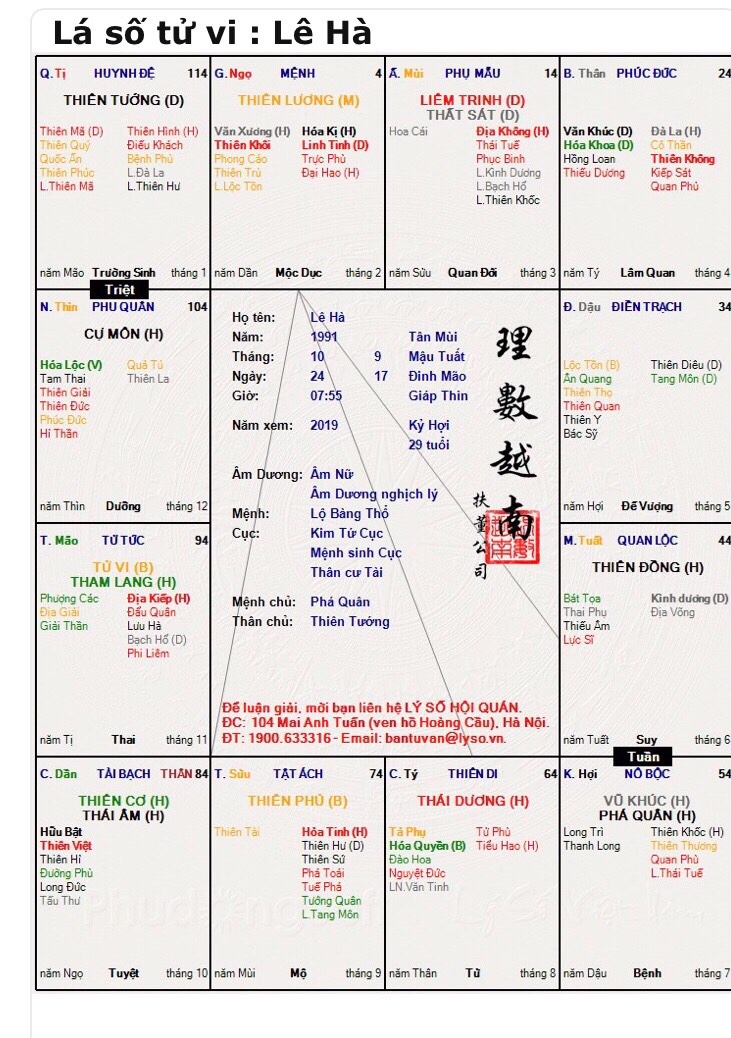 Lá số tử vi : Lê Hà
Q. Tị HUYNH ĐỆ 114
THIÊN TƯỚNG (D)
Thiên Mã (D) Thiên Hình (H)
Thiên Quý Điếu Khách
Quốc Ấn Bệnh Phù
Thiên Phúc L.Đà La
L.Thiên Mã L.Thiên Hư
năm Mão Trường Sinh tháng 1
G. Ngọ MỆNH 4
THIÊN LƯƠNG (M)
Văn Xương (H) Hóa Kị (H)
Thiên Khôi Linh Tinh (D)
Phong Cáo Trực Phù
Thiên Trù Đại Hao (H)
L.Lộc Tồn
năm Dần Mộc Dục tháng 2
Ấ. Mùi PHỤ MẪU 14
LIÊM TRINH (D)
THẤT SÁT (D)
Hoa Cái Địa Không (H)
Thái Tuế
Phục Binh
L.Kình Dương
L.Bạch Hổ
L.Thiên Khốc
năm Sửu Quan Đới tháng 3
B. Thân PHÚC ĐỨC 24
Văn Khúc (D) Đà La (H)
Hóa Khoa (D) Cô Thần
Hồng Loan Thiên Không
Thiếu Dương Kiếp Sát
Quan Phủ
năm Tý Lâm Quan tháng 4
Triệt
N. Thìn PHU QUÂN 104
CỰ MÔN (H)
Hóa Lộc (V) Quả Tú
Tam Thai Thiên La
Thiên Giải
Thiên Đức
Phúc Đức
Hỉ Thần
năm Thìn Dưỡng tháng 12
Họ tên: Lê Hà
Năm: 1991 Tân Mùi
Tháng: 10 9 Mậu Tuất
Ngày: 24 17 Đinh Mão
Giờ: 07:55 Giáp Thìn
Năm xem: 2019 Kỷ Hợi
29 tuổi
Âm Dương: Âm Nữ
Âm Dương nghịch lý
Mệnh: Lộ Bàng Thổ
Cục: Kim Tứ Cục
Mệnh sinh Cục
Thân cư Tài
Mệnh chủ: Phá Quân
Thân chủ: Thiên Tướng
理數越南
扶董公司
Để luận giải, mời bạn liên hệ LÝ SỐ HỘI QUÁN.
ĐC: 104 Mai Anh Tuấn (ven hồ Hoàng Cầu), Hà Nội.
ĐT: 1900.633316 - Email: bantuvan@lyso.vn.
Đ. Dậu ĐIỀN TRẠCH 34
Lộc Tồn (B) Thiên Diêu (D)
Ân Quang Tang Môn (D)
Thiên Thọ
Thiên Quan
Thiên Y
Bác Sỹ
năm Hợi Đế Vượng tháng 5
T. Mão TỬ TỨC 94
TỬ VI (B)
THAM LANG (H)
Phượng Các Địa Kiếp (H)
Địa Giải Đẩu Quân
Giải Thần Lưu Hà
Bạch Hổ (D)
Phi Liêm
năm Tị Thai tháng 11
M. Tuất QUAN LỘC 44
THIÊN ĐỒNG (H)
Bát Tọa Kình dương (D)
Thai Phụ Địa Võng
Thiếu Âm
Lực Sĩ
năm Tuất Suy tháng 6
Tuần
C. Dần TÀI BẠCH THÂN 84
THIÊN CƠ (H)
THÁI ÂM (H)
Hữu Bật
Thiên Việt
Thiên Hỉ
Đường Phù
Long Đức
Tấu Thư
năm Ngọ Tuyệt tháng 10
T. Sửu TẬT ÁCH 74
THIÊN PHỦ (B)
Thiên Tài Hỏa Tinh (H)
Thiên Hư (D)
Thiên Sứ
Phá Toái
Tuế Phá
Tướng Quân
L.Tang Môn
năm Mùi Mộ tháng 9
C. Tý THIÊN DI 64
THÁI DƯƠNG (H)
Tả Phụ Tử Phù
Hóa Quyền (B) Tiểu Hao (H)
Đào Hoa
Nguyệt Đức
LN.Văn Tinh
năm Thân Tử tháng 8
K. Hợi NÔ BỘC 54
VŨ KHÚC (H)
PHÁ QUÂN (H)
Long Trì Thiên Khốc (H)
Thanh Long Thiên Thương
Quan Phù
L.Thái Tuế
năm Dậu Bệnh tháng 7